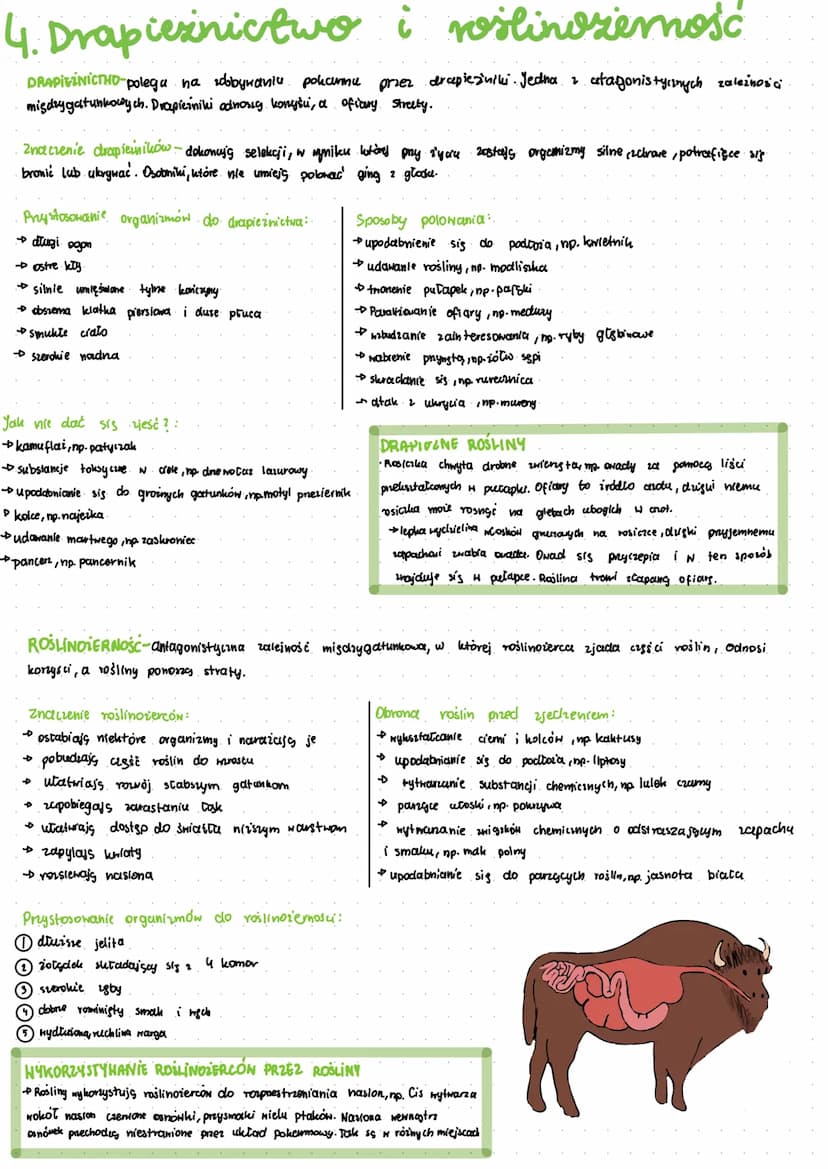 4. Drapieżnictwo i roślinożerność
DRAPIEŻNICTWO-polega na zdobywaniu pokarmu przez drapieżniki. Jedna z antagonistycznych zależności
międzygatunkowych. Drapieżniki odnoszą korzyści, a ofiary straty.
Znaczenie drapieżników - dokonują selekcji, w wyniku której przy życiu zostają organizmy silne, zdrowe, potrafiące się
bronić lub ukrywać. Osobniki, które nie umieją polować giną z głodu.
Przystosowanie organizmów do drapieżnictwa:
→ długi ogon
→ ostre kły
→ silnie umięśnione tylne kończyny
→ obszerna klatka piersiowa i duże płuca
→ smukłe ciało
→ szerokie nadna
Sposoby polowania:
→ upodabnienie się do podłoża, np. kwietnik
→ udawanie rośliny, np. modliszka
→ tworzenie pułapek, np. pająki
→ Paraliżowanie ofiary, np. meduzy
→ wzbudzanie zainteresowania, np. ryby głębinowe
→ wabienie przynętą, np. żółw sępi
→ skradanie się, np.
→ atak z ukrycia, np. mureny
Jak nie dać się zjeść?:
→ kamuflaż, np. patyczak
→ substancje toksyczne w ciele, np. drzewołaz lazurowy
→ upodabnianie się do groźnych gatunków, np. motyl przeziernik
→ kolce, np. najeżka
→ udawanie martwego, np. zaskroniec
→ pancerz, np. pancernik
DRAPIEŻNE ROŚLINY
· Rosiczka chwyta drobne zwierzęta, np. owady za pomocą liści
przekształconych w pułapki. Ofiary to źródło azotu, dzięki niemu
rosiczka może rosnąć na glebach ubogich w azot.
→ lepka wydzielina włosków gruczowych na rosiczce, dzięki przyjemnemu
zapachowi zwabia owada. Owad się przyczepia i w ten sposób
znajduje się w pułapce. Roślina trawi złapaną ofiarę.
ROŚLINOŻERNOŚĆ-antagonistyczna zależność międzygatunkowa, w której roślinożerca zjada części roślin, odnosi
korzyści, a rośliny ponoszą straty.
Znaczenie roślinożerców:
→ osłabiają niektóre organizmy i narażają je
→ pobudzają część roślin do wzrostu
→ ułatwiają rozwój słabszym gatunkom
→ zapobiegają zarastaniu łąk
→ ułatwiają dostęp do światła niższym warstwom
→ zapylają kwiaty
→ rozsiewają nasiona
Obrona roślin przed zjedzeniem:
→ wykształcanie cierni i kolców, np. kaktusy
→ upodabnianie się do podłoża, np. liptosy
→ wytwarzanie substancji chemicznych, np. lulek czarny
→ parzące włoski, np. pokrzywa
→ wytwarzanie związków chemicznych o odstraszającym zapachu
i smaku, np. mak polny
→ upodabnianie się do parzących roślin, np. jasnota biała
Przystosowanie organizmów do roślinożerności:
1 dłuższe jelita
2 żołądek składający się z 4 komór
3 szerokie zęby
4 dobrze rozwinięty smak i węch
5 wydłużona, ruchliwa warga
WYKORZYSTYWANIE ROŚLINOŻERCÓW PRZEZ ROŚLINY
→ Rośliny wykorzystują roślinożerców do rozprzestrzeniania nasion, np. Cis wytwarza
wokół nasion czerwone osnówki, przysmaki wielu ptaków. Nasiona wewnątrz
osnówek przechodzą niestrawione przez układ pokarmowy. Tak są w różnych miejscach